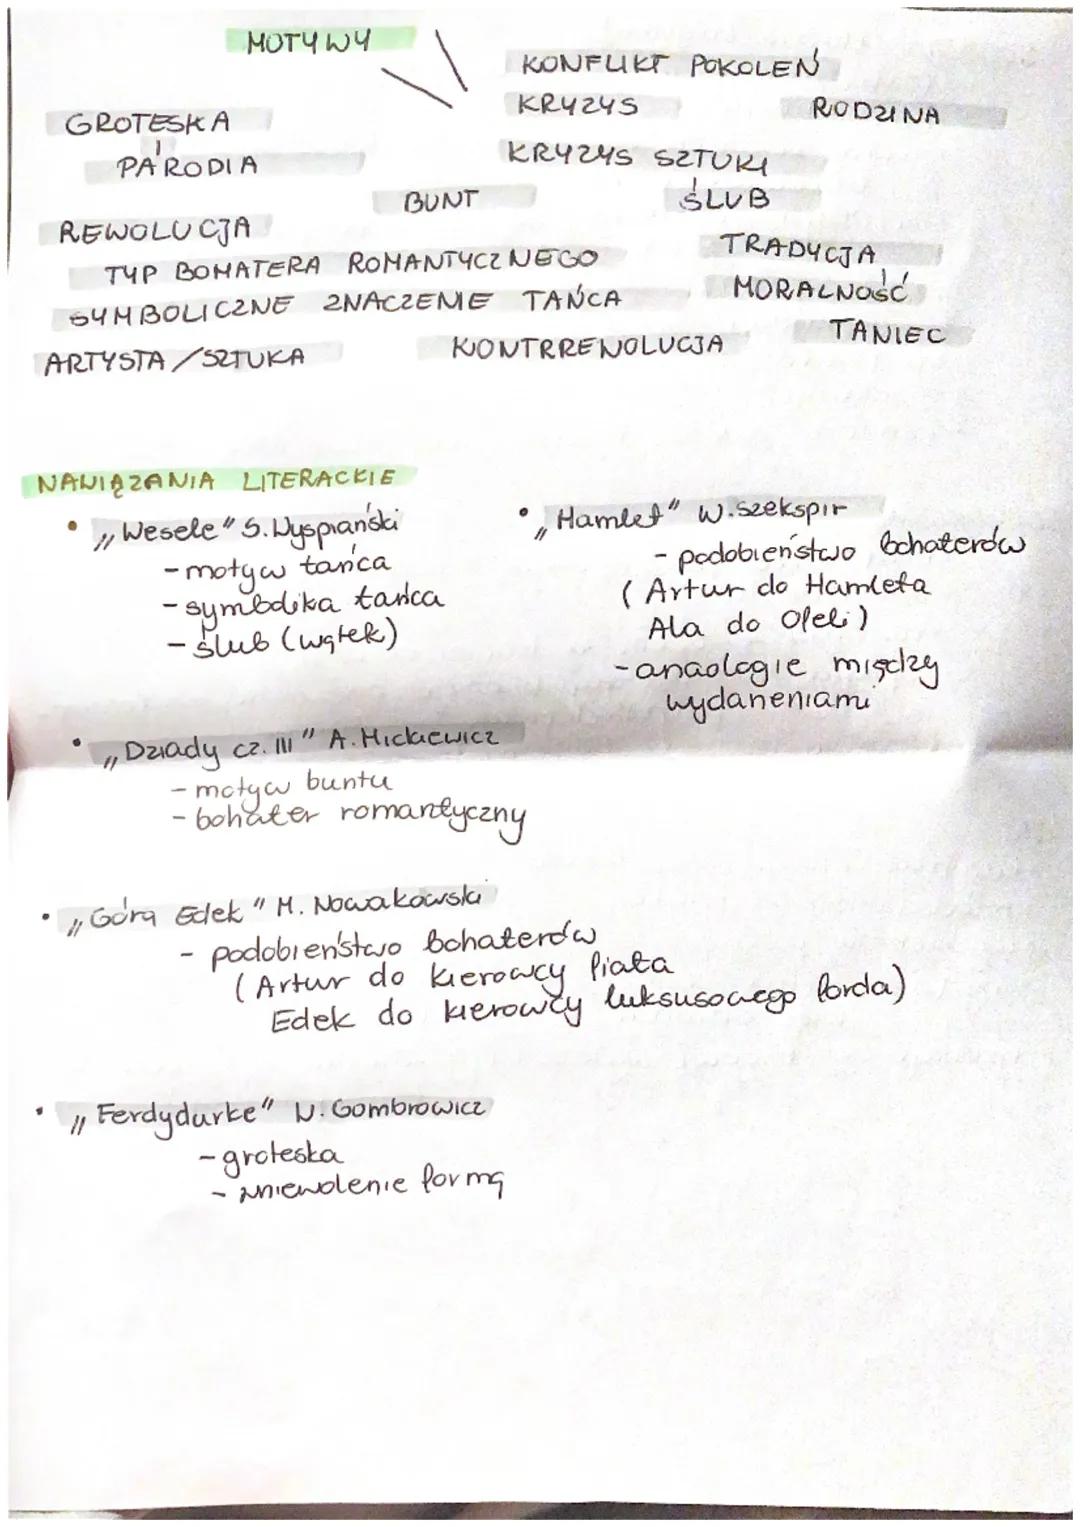 MOTYWY
KONFLIKT POKOLEŃ
KRYZYS
RODZINA
GROTESKA
I
PARODIA
KRYZYS SZTUKI
BUNT
ŚLUB
REWOLUCJA
TRADYCJA
TYP BOHATERA ROMANTYCZNEGO
MORALNOŚĆ
SYMBOLICZNE ZNACZENIE TAŃCA
TANIEC
ARTYSTA/SZTUKA
KONTRREWOLUCJA
NAWIĄZANIA LITERACKIE
• „Wesele" S. Wyspiański
- motyw tańca
- symbolika tańca
- ślub (wątek)
• „Hamlet" W. Szekspir
- podobieństwo bohaterów
(Artur do Hamleta
Ala do Ofeli)
- anaologie między
wydaneniami
• „Dziady cz. III" A. Mickiewicz
- motyw buntu
- bohater romantyczny
• „Górą Edek" M. Nowakowski
- podobieństwo bohaterów
(Artur do kierowcy fiata
Edek do kierowcy luksusowego forda)
• „Ferdydurke" W. Gombrowicz
- groteska
- zniewolenie formą